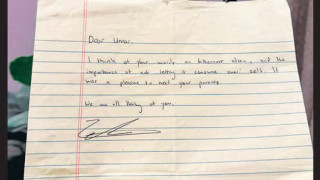 Dear Umar,
I think of your words on bitterness often, and the
importance of not letting it consume one's self. It
was a pleasure to meet your parents.
We are all thinking of you.